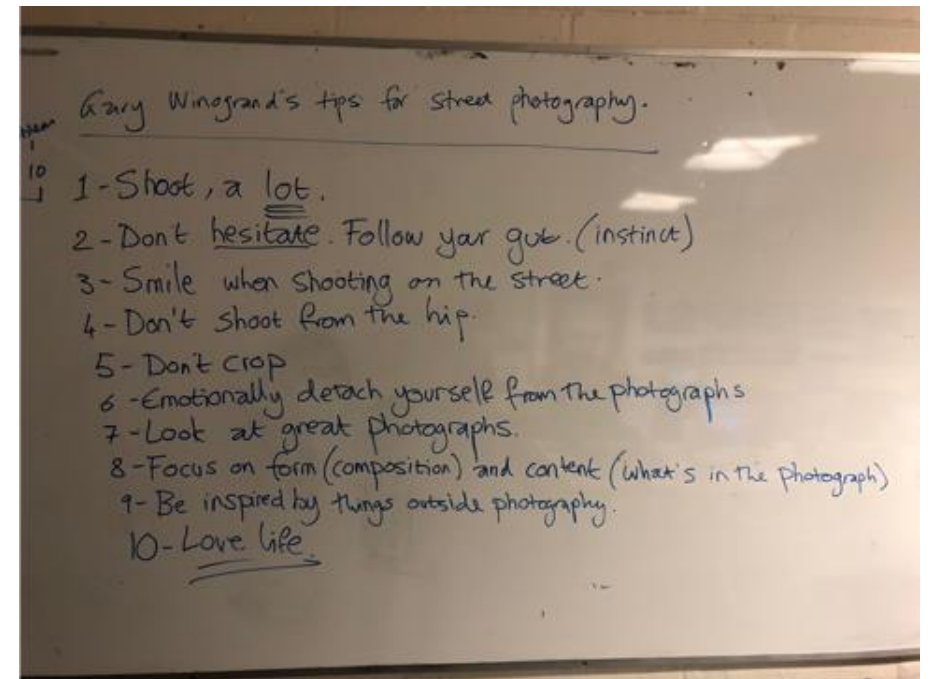 Gary Winogrand's tips for street photography.
10
1 - Shoot, a lot.
2 - Don't hesitate. Follow your gut. (instinct)
3 - Smile when shooting on the street.
4 - Don't shoot from the hip.
5 - Don't crop
6 - Emotionally detach yourself from the photographs
7 - Look at great photographs.
8 - Focus on form (composition) and content (what's in the photograph)
9 - Be inspired by things outside photography.
10 - Love life.